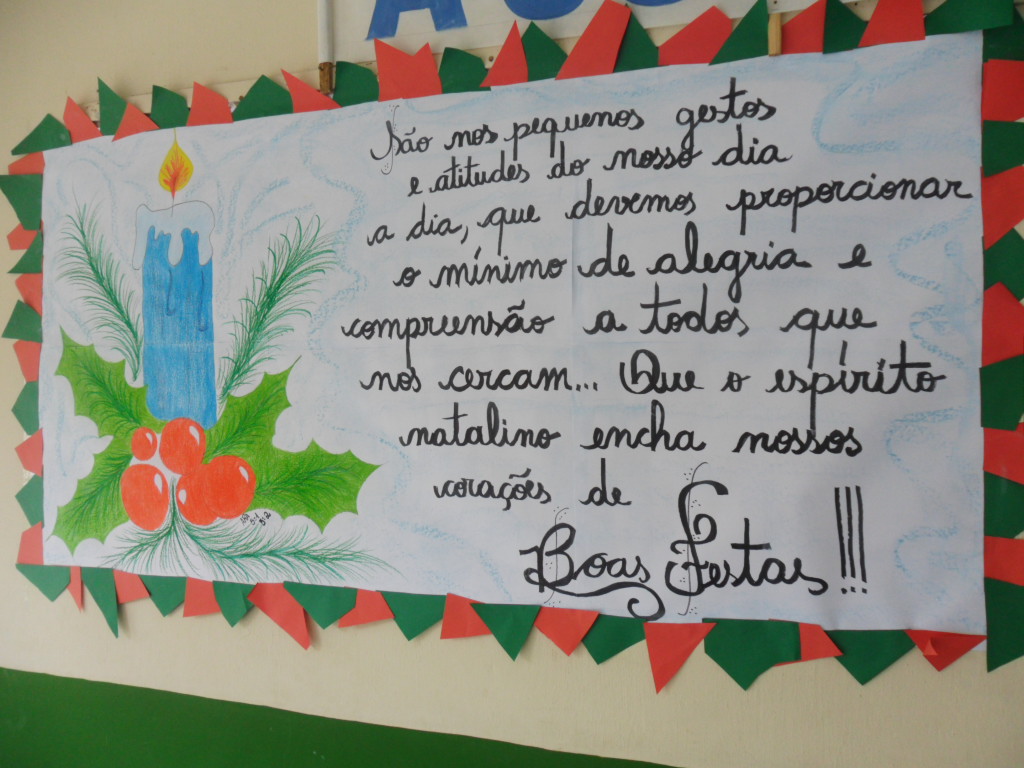 São nos pequenos gestos
e atitudes do nosso dia
a dia, que devemos proporcionar
o mínimo de alegria e
compreensão a todos que
nos cercam... Que o espírito
natalino encha nossos
corações de
Boas Festas!!!